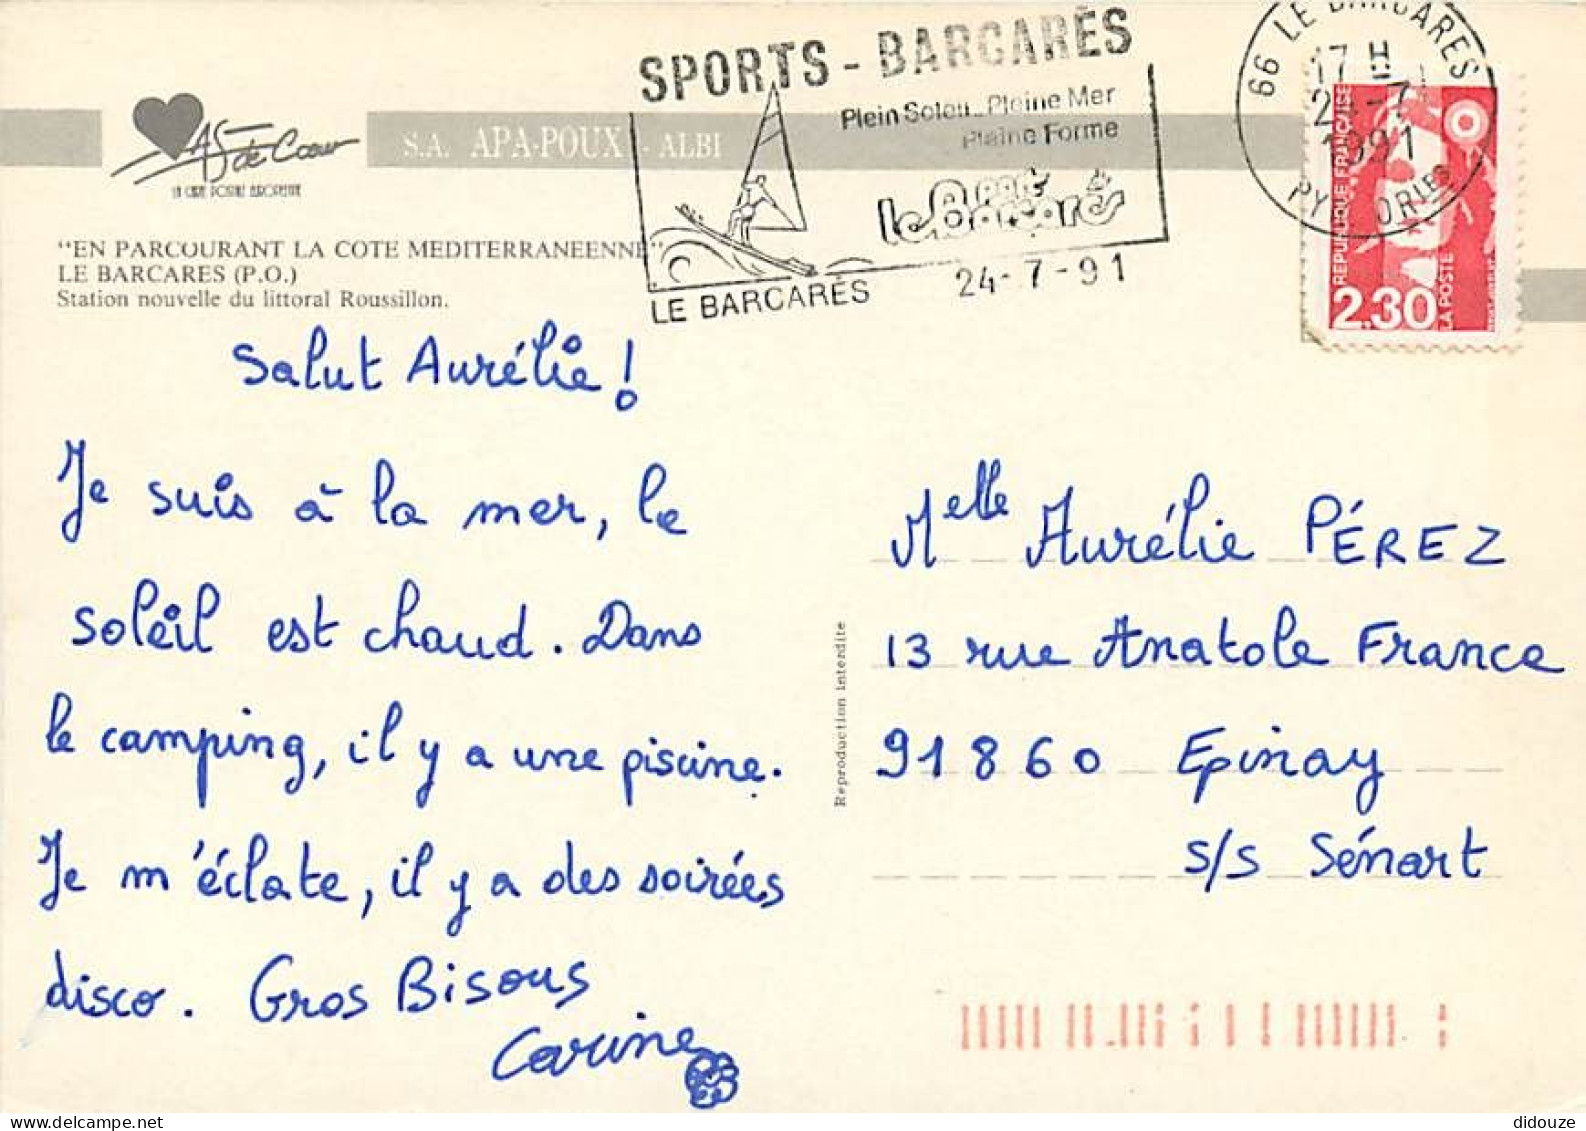 SPORTS - BARCARÈS
Plein Soleil_Pleine Mer
Pleine Forme
Port
Le Barcarès
LE BARCARÈS
24-7-91
66 LE BARCARES
17 H
24-7
1991
PYR ORLES
REPUBLIQUE FRANÇAISE
2.30
LA POSTE
AS de Coeur
LA CARTE POSTALE EUROPEENNE
S.A. APA-POUX - ALBI
"EN PARCOURANT LA COTE MEDITERRANEENNE"
LE BARCARES (P.O.)
Station nouvelle du littoral Roussillon.
Salut Aurélie !
Je suis à la mer, le
soleil est chaud. Dans
le camping, il y a une piscine.
Je m'éclate, il y a des soirées
disco. Gros Bisous
Carine
Reproduction interdite
Melle Aurélie PÉREZ
13 rue Anatole France
91860 Epinay
s/s Sénart
didouze